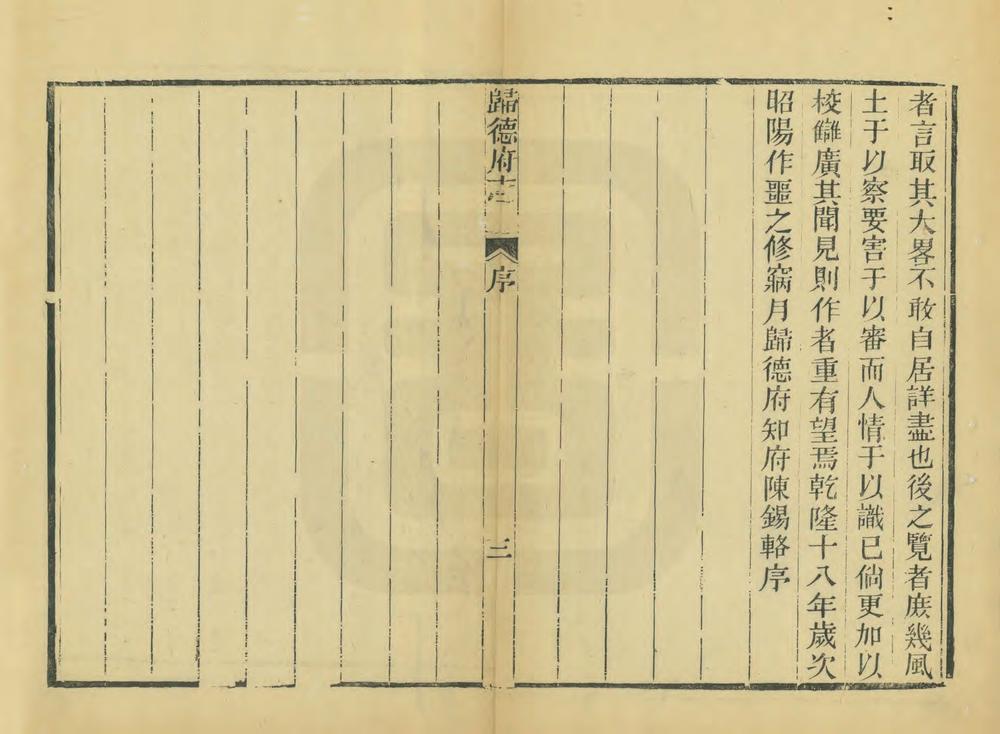 者言取其大畧不敢自居詳盡也後之覽者庻幾風
土于以察要害于以審而人情于以識已倘更加以
校讎廣其聞見則作者重有望焉乾隆十八年歲次
昭陽作噩之修窩月歸德府知府陳錫輅序
歸德府志
序
三